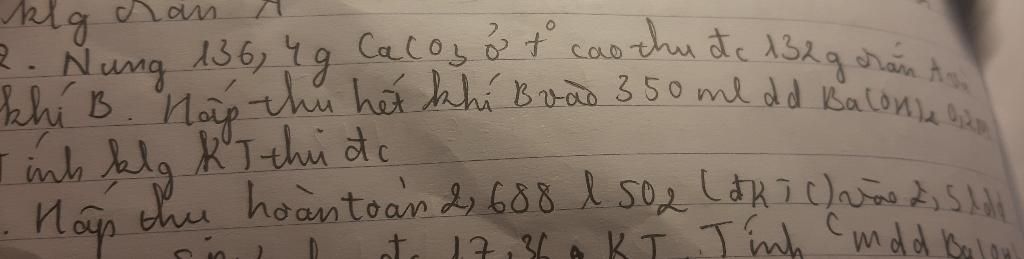 klg rắn A
2. Nung 136,4g CaCO3 ở t° cao thu đc 132g rắn A
khí B. Hấp thu hết khí B vào 350 ml dd Ba(OH)2
Tính klg KT thu đc
. Hấp thu hoàn toàn 2,688 l SO2 (đktc) vào 2,5l dd
đc 17,36g KT. Tính Cm dd